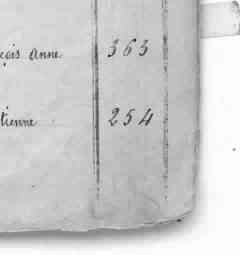 çois Anne 363
tienne 254